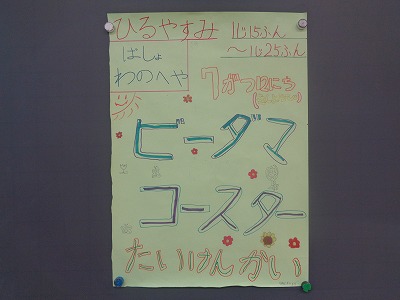 ひるやすみ 1じ15ふん
～1じ25ふん
ばしょ
わのへや
7がつ12にち
ビーダマ
コースター
たいけんかい